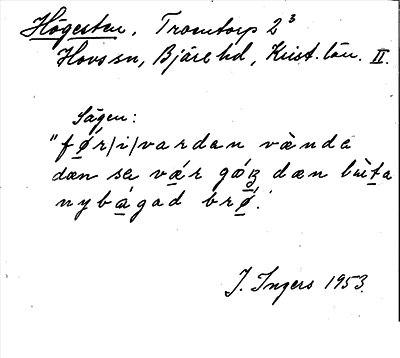 Högesten, Tromtorp 2³
Hovs sn, Bjäre hd, Krist. län. II.
Sägen:
"før/i/vardan vànda
dæn sa vær gǿʒ dæn bùta
nybágad brø̀.
J. Ingers 1953.